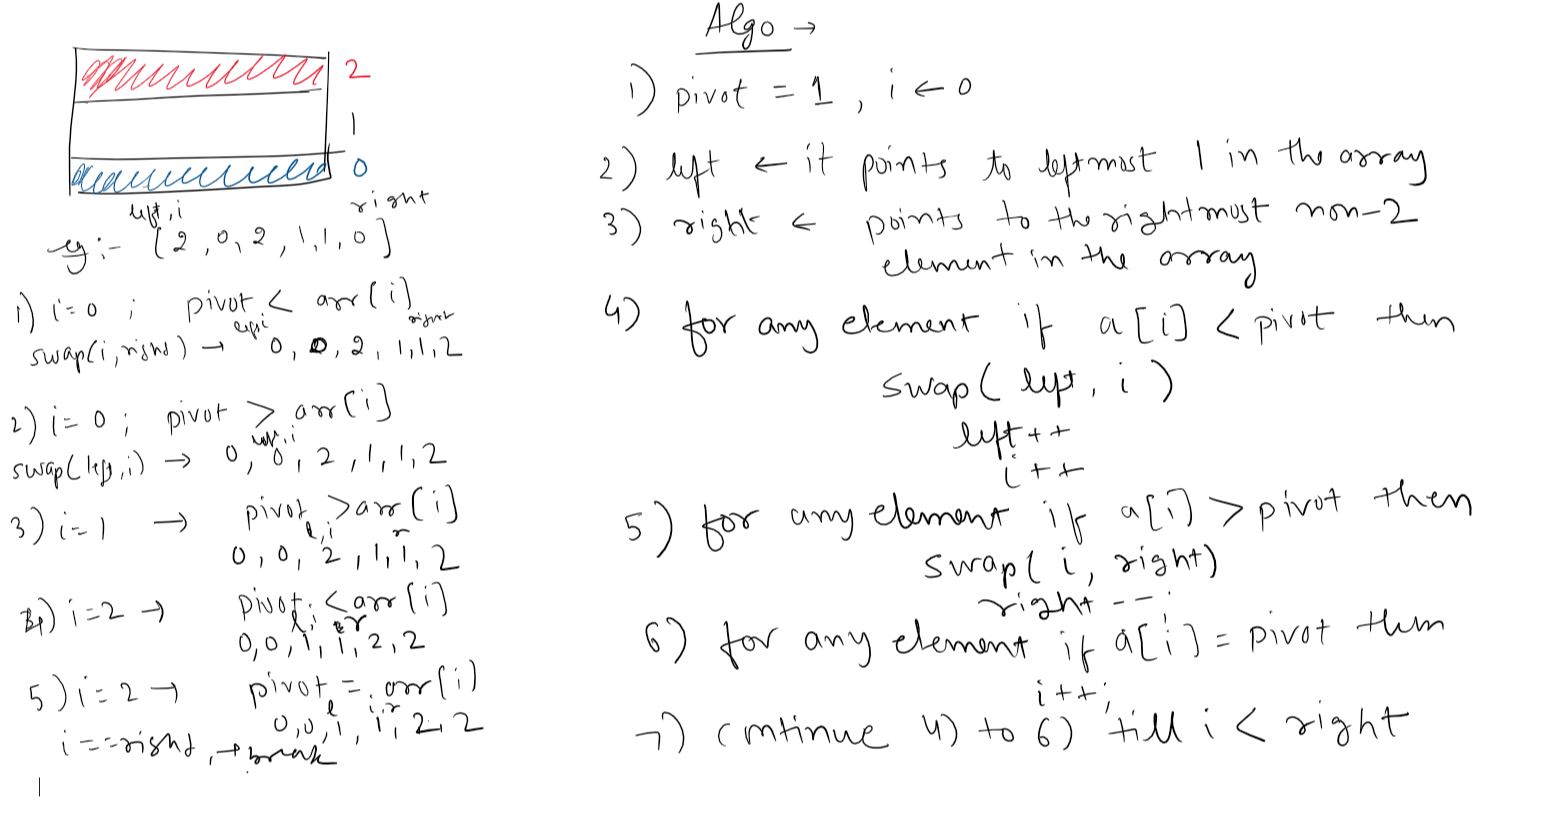 2
1
0
left, i
right
eg :- [2, 0, 2, 1, 1, 0]
1) i=0 ; pivot < arr[i]
left,i right
swap(i, right) → 0, 0, 2, 1, 1, 2
2) i=0 ; pivot > arr[i]
left,i
swap(left, i) → 0, 0, 2, 1, 1, 2
3) i=1 → pivot > arr[i]
l,i r
0, 0, 2, 1, 1, 2
4) i=2 → pivot < arr[i]
l,i r
0, 0, 1, 1, 2, 2
5) i=2 → pivot = arr[i]
l i,r
0, 0, 1, 1, 2, 2
i==right, → break
Algo →
1) pivot = 1 , i ← 0
2) left ← it points to leftmost 1 in the array
3) right ← points to the rightmost non-2
element in the array
4) for any element if a[i] < pivot then
swap( left, i )
left++
i++
5) for any element if a[i] > pivot then
swap( i, right)
right --;
6) for any element if a[i] = pivot then
i++;
7) continue 4) to 6) till i < right